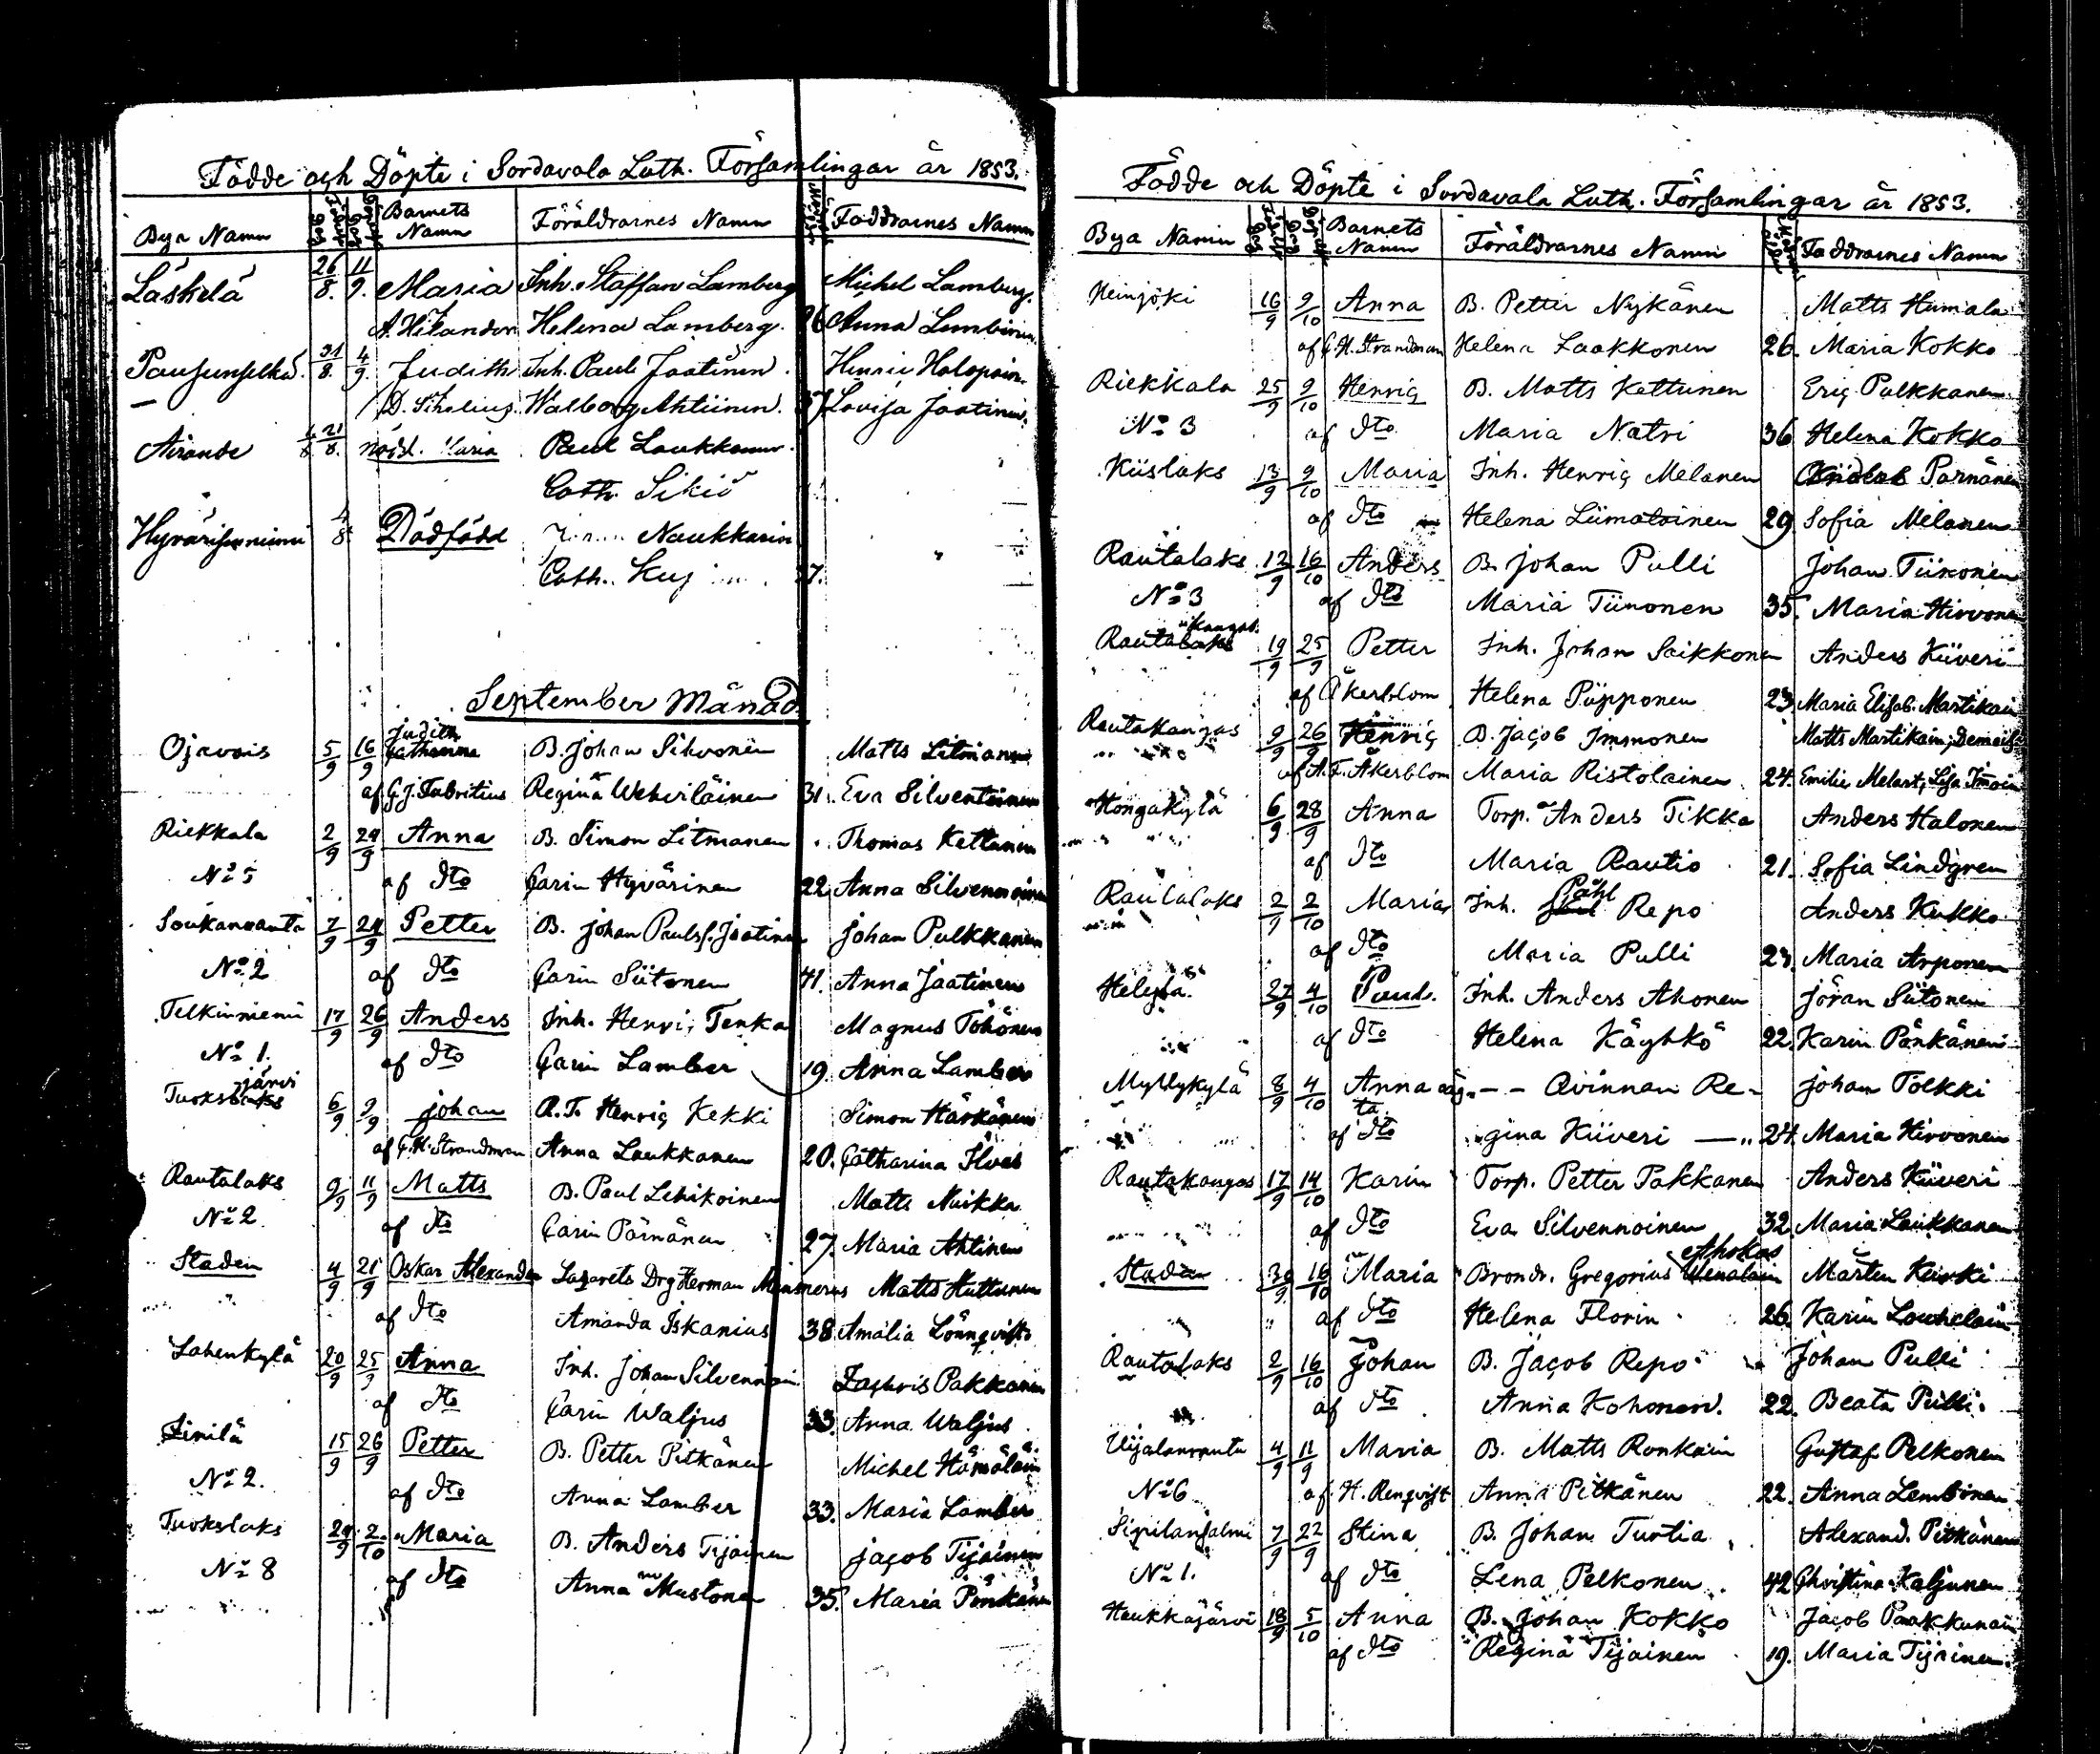 Födde och Döpte i Sordavala Luth. Församlingar år 1853.
Bya Namn Barnets Namn Föräldrarnes Namn Faddrarnes Namn
Läskelä 26/8. 11/9. Maria Inh. Staffan Lamberg Michel Lamberg.
A. Hikander Helena Lamberg. 26 Anna Lembinen
31/8. 4/9. Judith Inh. Paul Jaatinen. Henric Holopain.
D. Sihelius. Walborg Ahtiinen. 37 Lovisa Jaatinen.
Airande 4/8 21/8. nöd. Maria Paul Laukkanen.
Cath. Sikiö
Hyvärisenniemi 4/8 Dödfödd Naukkarin
Cath. 37.
September Månad.
Ojavois 5/9 16/9 Judith Catharina B. Johan Sihvonen Matts Litmanen
af G. J. Fabritius Regina Wehviläinen 31. Eva Silventoinen
Riekkala 2/9 24/9 Anna B. Simon Litmanen Thomas Kettunen
No 5 af Dto Carin Hyvärinen 22 Anna Silvennoinen
Soukanranta 7/9 24/9 Petter B. Johan Paulss. Jaatinen Johan Pulkkanen
No 2 af Dto Carin Siitonen 41. Anna Jaatinen
Telkinniemi 17/9 26/9 Anders Inh. Henric Tenka Magnus Töhönen
No 1. af Dto Carin Lamber 19. Anna Lamber
Tuoksjärvi 6/9 9/9 Johan R. T. Henric Kekki Simon Härkönen
af G. H. Strandman Anna Laukkanen 20. Catharina Ilves
Rautalaks 9/9 11/9 Matts B. Paul Lehikoinen Matts Nuikka
No 2. af Dto Carin Pärnänen 27. Maria Ahtinen
Staden 4/9 21/9 Oskar Alexander Lazarets Drg Herman Matts Huttunen
af Dto Amanda Iskanius 38 Amalia Lönnqvist
Lahenkylä 20/9 25/9 Anna Inh. Johan Silvennoin Zachris Pakkanen
af Dto Carin Waljus 33. Anna Waljus.
15/9 26/9 Petter B. Petter Pitkänen Michel Hämäläin
No 2. af Dto Anna Lamber 33. Maria Lamber
Tuokslaks 24/9 2/10 Maria B. Anders Tijainen Jacob Tijainen
No 8 af Dto Anna Mustonen 35. Maria Pönkänen
Födde och Döpte i Sordavala Luth. Församlingar år 1853.
Bya Namn Barnets Namn Föräldrarnes Namn Faddrarnes Namn
Heinjoki 16/9 9/10 Anna B. Petter Nykänen Matts Humala
af G. H. Strandman Helena Laakkonen 26. Maria Kokko
Riekkala 25/9 9/10 Henric B. Matts Kettunen Eric Pulkkanen
No 3 af Dto Maria Natri 36 Helena Kokko
Kiislaks 13/9 9/10 Maria Inh. Henric Melanen Pärnänen
af Dto Helena Liimatainen 29. Sofia Melanen
Rautalaks 12/9 16/10 Anders B. Johan Pulli Johan Tiinonen
No 3 af Dto Maria Tiinonen 35. Maria Hirvonen
Rautakangas 19/9 25/9 Petter Inh. Johan Saikkonen Anders Kiiveri
af Åkerblom Helena Piipponen 23. Maria Elisab. Martikain
Rautakangas 9/9 26/9 Henric B. Jacob Immonen Matts Martikain, Demois.
af A. F. Åkerblom Maria Ristolainen 24. Emilie Melart, Lisa Immoin
Hongakylä 6/9 28/9 Anna Torp. Anders Tikka Anders Halonen
af Dto Maria Rautio 21. Sofia Lindgren
Rautalaks 2/9 2/10 Maria Inh. Påhl Repo Anders Kukko
af Dto Maria Pulli 23. Maria Arponen
Helylä. 27/9 4/10 Paul. Inh. Anders Ahonen Jöran Siitonen
af Dto Helena Käyhkö 22. Karin Pönkänen
Myllykylä 8/9 4/10 Anna oäg. - - Qvinnan Re- Johan Tolkki
ta. af Dto gina Kiiveri — 24. Maria Hirvonen
Rautakangas 17/9 14/10 Karin Torp. Petter Pakkanen Anders Kiiveri
af Dto Eva Silvennoinen 32. Maria Laukkanen
Staden 30/9 16/10 Maria Brondr. Gregorius Ahokas Mårten Kurki
af Dto Helena Florin 26. Karin Louhelain
Rautalaks 2/9 16/10 Johan B. Jacob Repo Johan Pulli
af Dto Anna Kohonen. 22. Beata Pulli.
Uijalanranta 4/9 11/9 Maria B. Matts Ronkain Gustaf Pelkonen
No 6 af H. Renqvist Anna Pitkänen 22. Anna Lembinen
Sipilansalmi 7/9 22/9 Stina B. Johan Turtia Alexand. Pitkänen
No 1. af Dto Lena Pelkonen. 42 Christina Kaljunen
Haukkajärvi 18/9 5/10 Anna B. Johan Kokko Jacob Paakkunain
af Dto Regina Tijainen 19. Maria Tijainen.